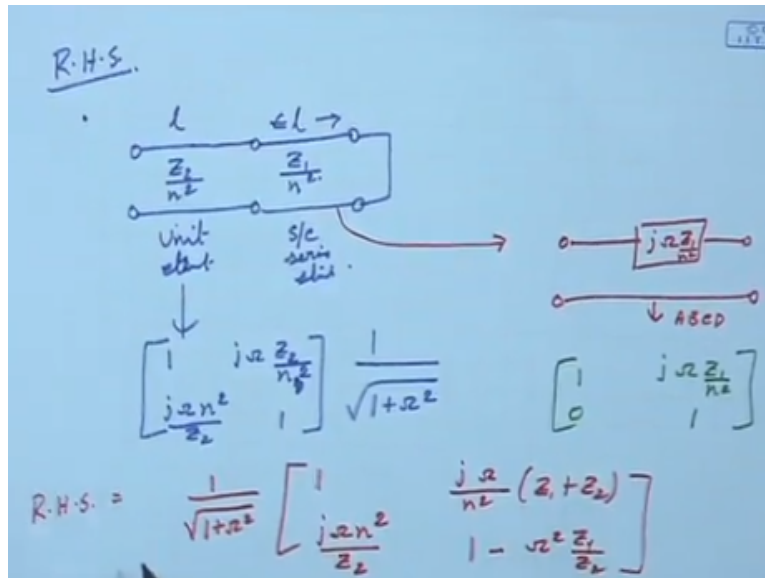 R.H.S.
l ← l →
Z₂/n² Z₁/n²
Unit s/c
elemt. series
stub.
jΩ Z₁/n²
↓ ABCD
[1 jΩ Z₂/n²; jΩn²/Z₂ 1] 1/√(1+Ω²)
[1 jΩ Z₁/n²; 0 1]
R.H.S. = 1/√(1+Ω²) [1 jΩ/n² (Z₁+Z₂); jΩn²/Z₂ 1 - Ω² Z₁/Z₂]